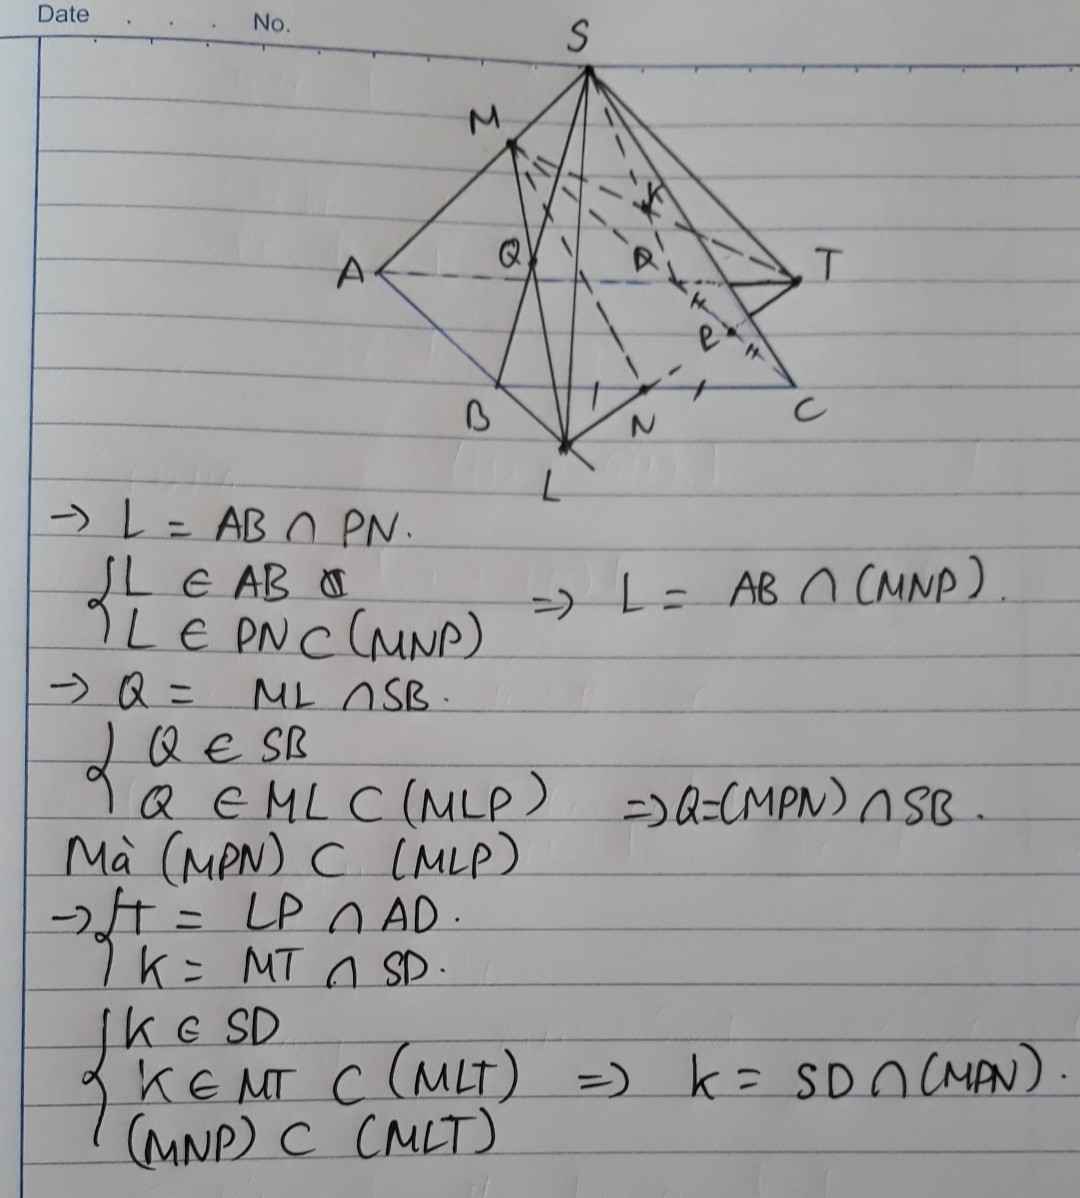 Date . . . No.
S
M
K
A
Q
D
T
P
B
N
C
L
→ L = AB ∩ PN.
{ L ∈ AB
{ L ∈ PN ⊂ (MNP) ⇒ L = AB ∩ (MNP).
→ Q = ML ∩ SB.
{ Q ∈ SB
{ Q ∈ ML ⊂ (MLP) ⇒ Q = (MPN) ∩ SB.
Mà (MPN) ⊂ (MLP)
→ { T = LP ∩ AD.
{ K = MT ∩ SD.
{ K ∈ SD
{ K ∈ MT ⊂ (MLT) ⇒ K = SD ∩ (MPN).
{ (MNP) ⊂ (MLT)